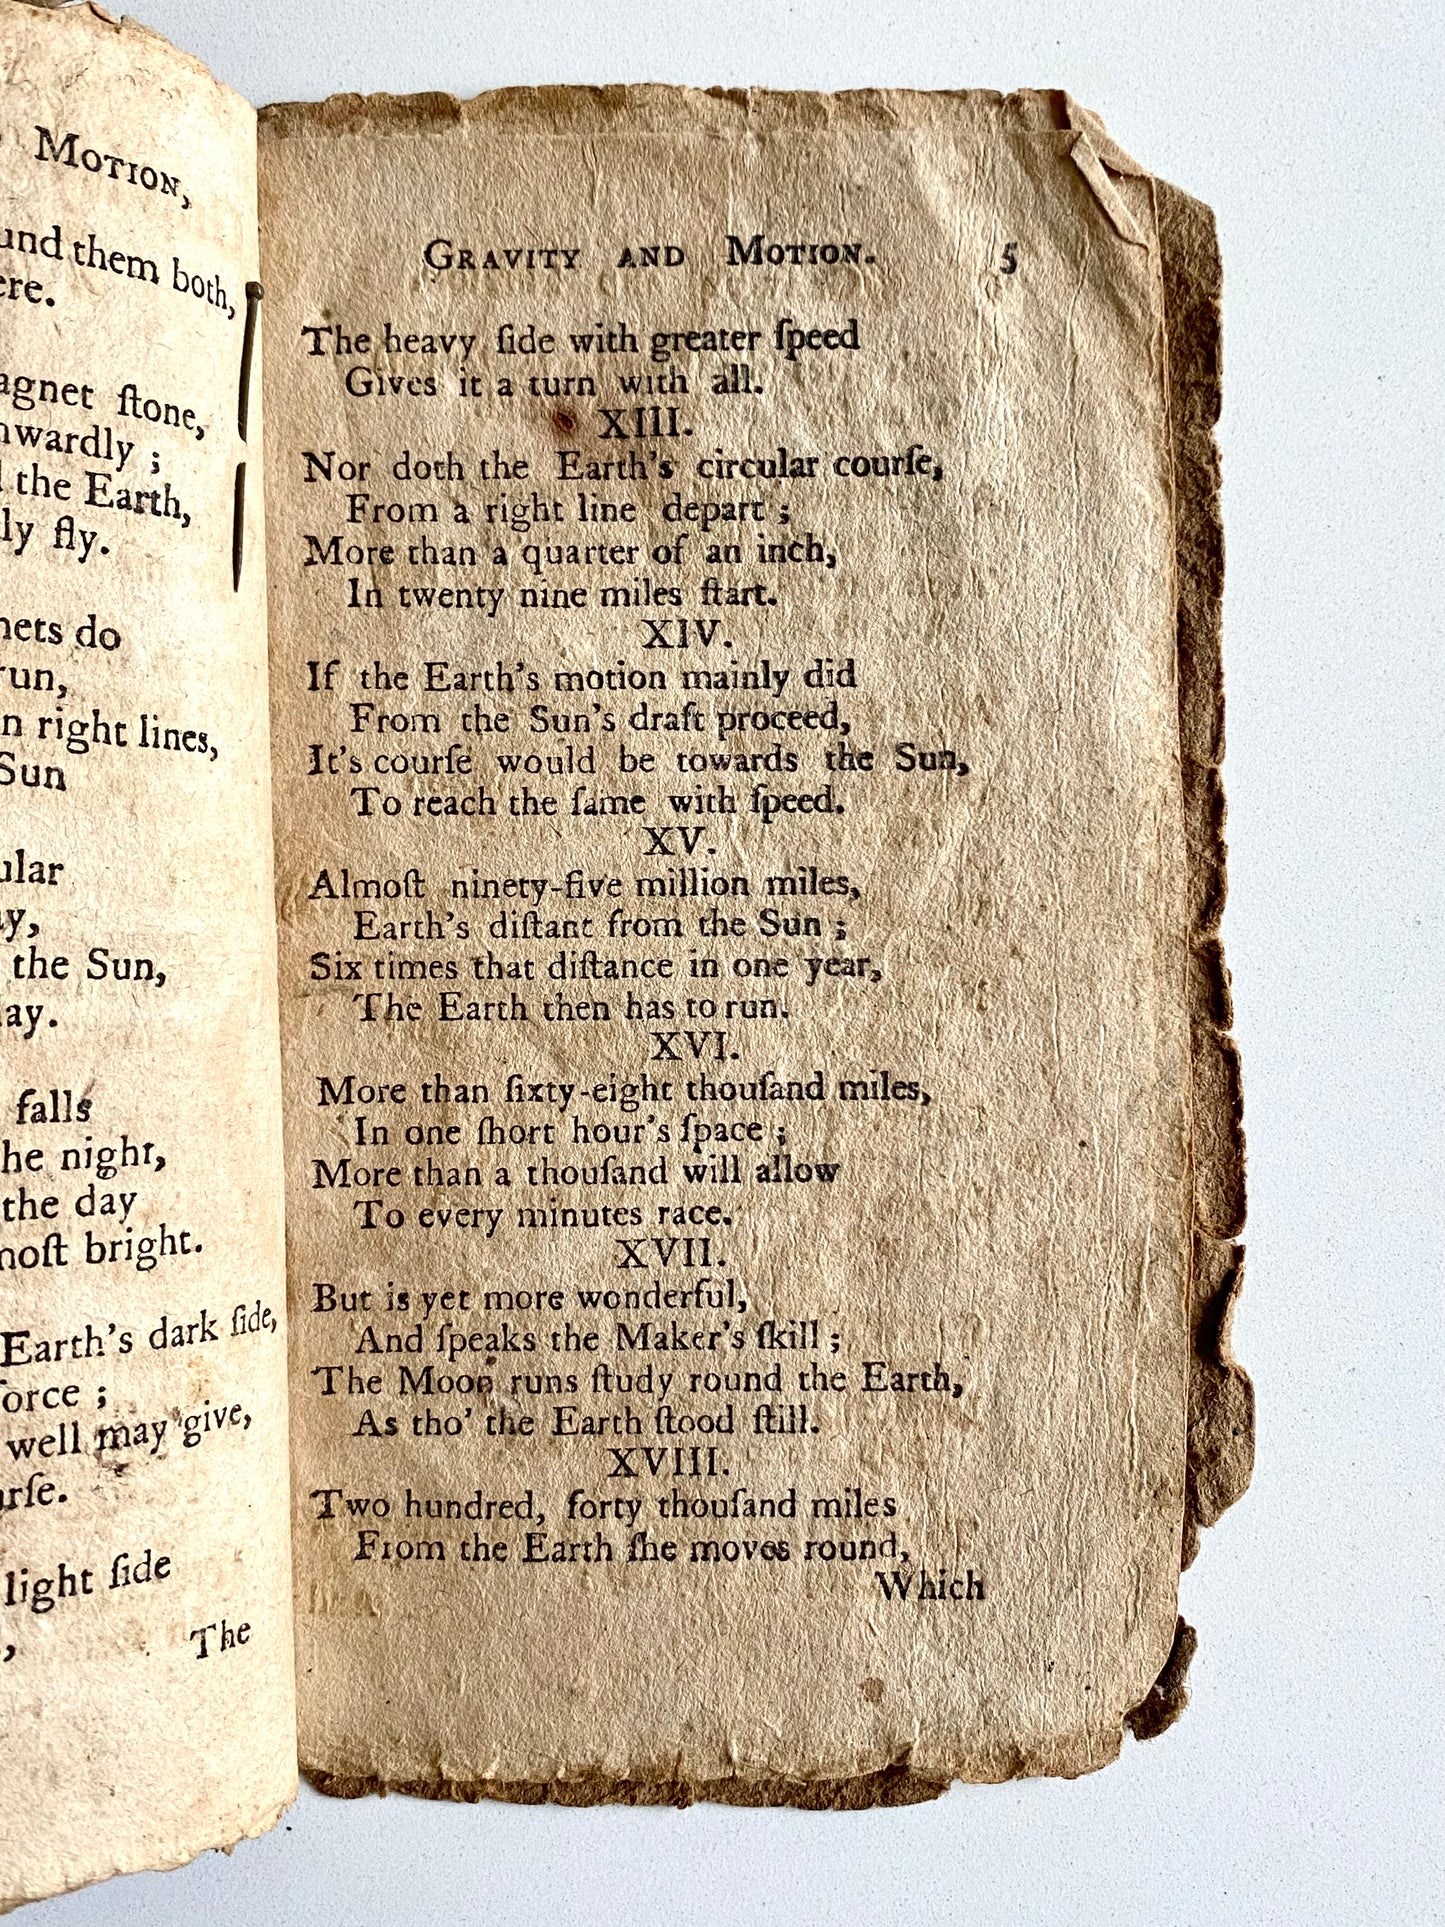 MOTION,
und them both,
ere.
agnet ſtone,
nwardly ;
the Earth,
ly fly.
nets do
run,
n right lines,
Sun
ular
ay,
the Sun,
ay.
falls
he night,
the day
moſt bright.
Earth's dark ſide,
force ;
well may give,
urſe.
light ſide
The
GRAVITY AND MOTION. 5
The heavy ſide with greater ſpeed
Gives it a turn with all.
XIII.
Nor doth the Earth's circular courſe,
From a right line depart ;
More than a quarter of an inch,
In twenty nine miles ſtart.
XIV.
If the Earth's motion mainly did
From the Sun's draft proceed,
It's courſe would be towards the Sun,
To reach the ſame with ſpeed.
XV.
Almoſt ninety-five million miles,
Earth's diſtant from the Sun ;
Six times that diſtance in one year,
The Earth then has to run.
XVI.
More than ſixty-eight thouſand miles,
In one ſhort hour's ſpace ;
More than a thouſand will allow
To every minutes race.
XVII.
But is yet more wonderful,
And ſpeaks the Maker's ſkill ;
The Moon runs ſtudy round the Earth,
As tho' the Earth ſtood ſtill.
XVIII.
Two hundred, forty thouſand miles
From the Earth ſhe moves round,
Which